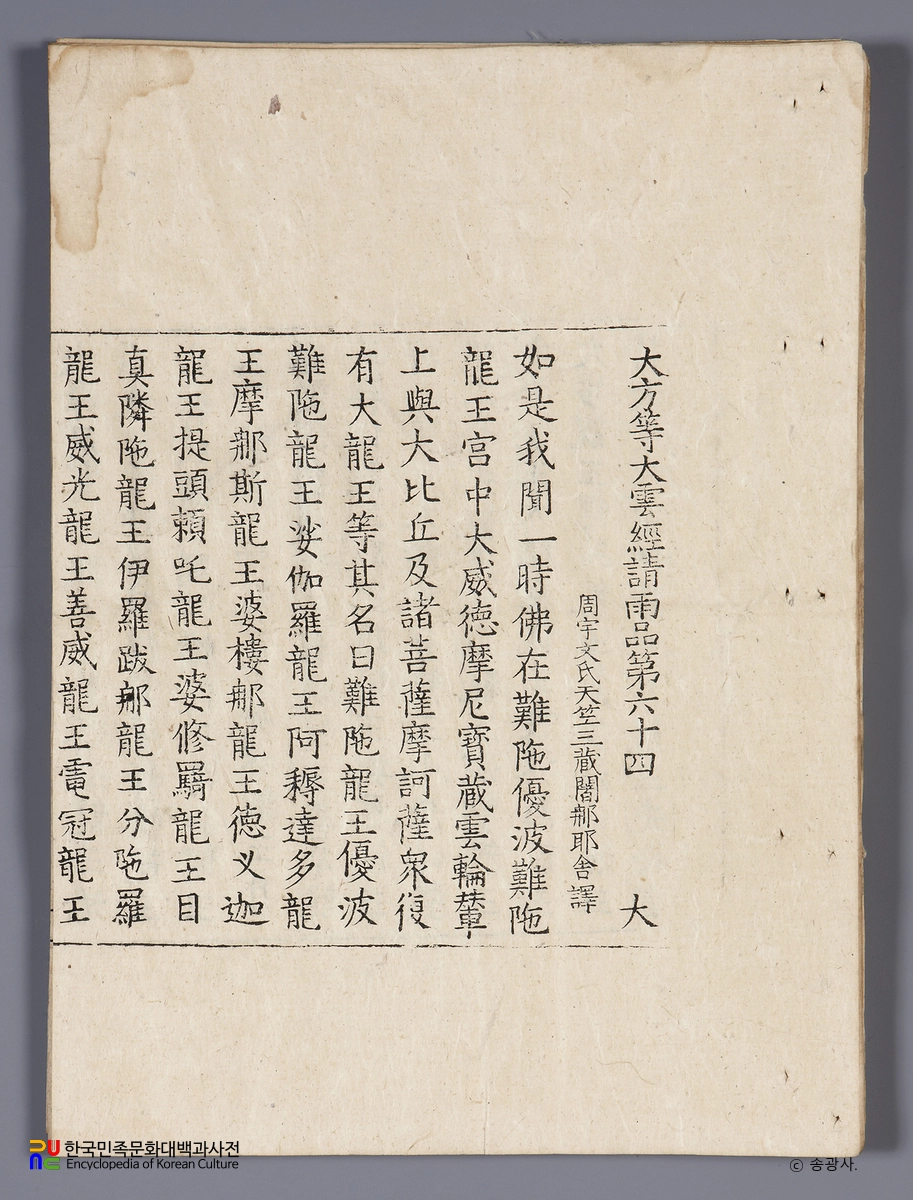 大方等大雲經請雨品第六十四 大
周宇文氏天竺三藏闍那耶舍譯
如是我聞一時佛在難陁優波難陁
龍王宮中大威德摩尼寶藏雲輪輦
上與大比丘及諸菩薩摩訶薩衆復
有大龍王等其名曰難陁龍王優波
難陁龍王娑伽羅龍王阿耨達多龍
王摩那斯龍王婆樓那龍王德义迦
龍王提頭頼吒龍王婆修羇龍王目
真隣陁龍王伊羅跋那龍王分陁羅
龍王威光龍王善威龍王電冠龍王
한국민족문화대백과사전
Encyclopedia of Korean Culture
© 송광사.